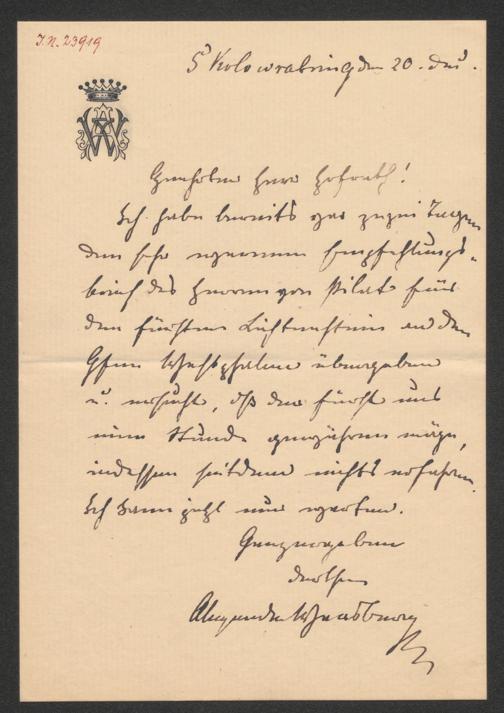 I.N. 23919
AW
5 Kolowratring den 20. Dec.
Geehrter Herr Hofrath!
Ich habe bereits vor zwei Tagen
den sehr warmen Empfehlungs-
brief des Herrn von Pilat für
den Fürsten Lichtenstein an den
Gfen Westphalen übergeben
u. ersucht, daß der Fürst uns
eine Stunde gewähren möge,
indessen seitdem nichts erfahren.
Ich kann jetzt nur warten.
Ganz ergebene
Alexander